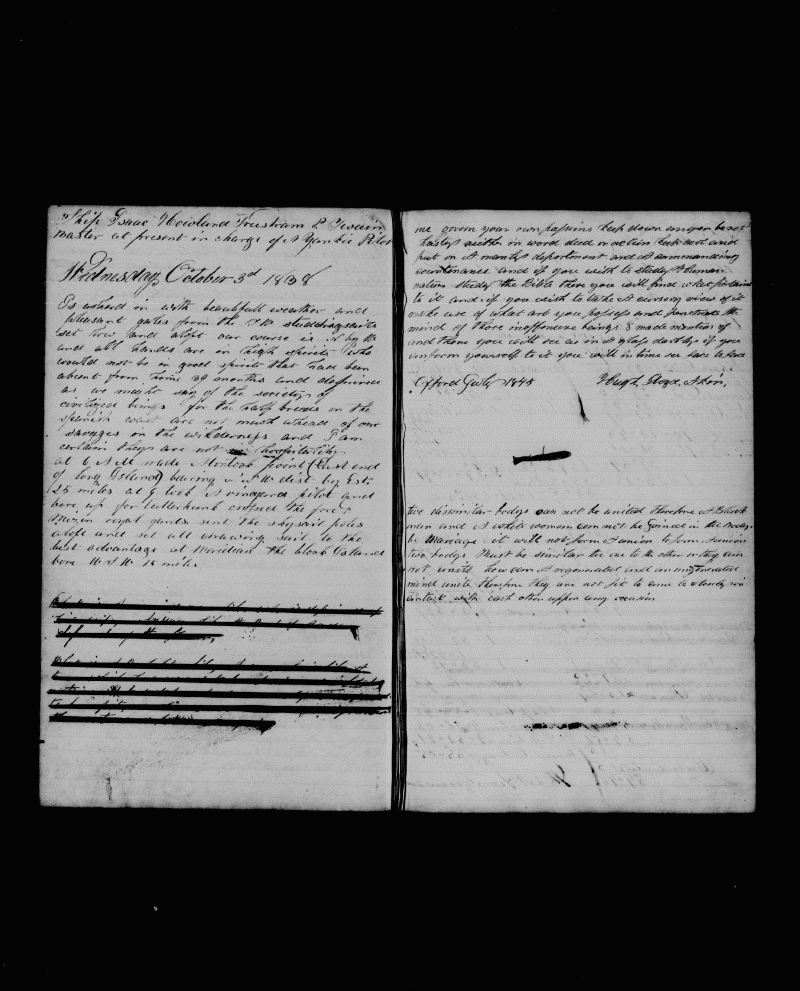 Ship Isaac Howland Trustram P. Swain
Master at present in charge of A Yankie Pilot
Wednesday October 3d 1838
Is usherd in with beautifull weather and
pleasant gales from the SW studdingsails
set low and aloft our course is N by W
and all hands are in high spirits who
would not be in good spirits that had been
absent from home 39 months and
as we might say of the society of
civilized beings for the half breeds on the
Spanish coast are not much ahead of our
savages in the wilderness and I am
certain they are not hospitality
at 6 AM made Montock point (East end
of long Island) bearing dist by Est
25 miles at 9 took A vinyard pilot and
bore up for crossed the fore &
Mizen royal yards sent the skysail poles
aloft and set all drawing sail to the
best advantage at Meridian the block Island
bore W S W 15 mile.
me govern your own passions keep down anger be not
hastey neither in word deed or action and
put on A manly deportment and A commanding
countenance and if you wish to study Human
nature study the Bible there you will find what pertains
to it and if you wish to take A cursory view of it
make use of what art you possess and the
mind of those inoffensive beings I made mention of
and there you will see as in A glass darkly if you
conform yourself to it you will in time see face to face
July 1848 Hugh
two dissimilar bodys can not be united therefore A Black
man and A white woman can not be joined in the bodys
be Marriage it will not form A union to form A union
two bodys Must be similar the one to the other or they can
not unite how can A regenerated and an unregenerated
mind unite therefore they are not fit to come in
contact with each other uppon any occasion